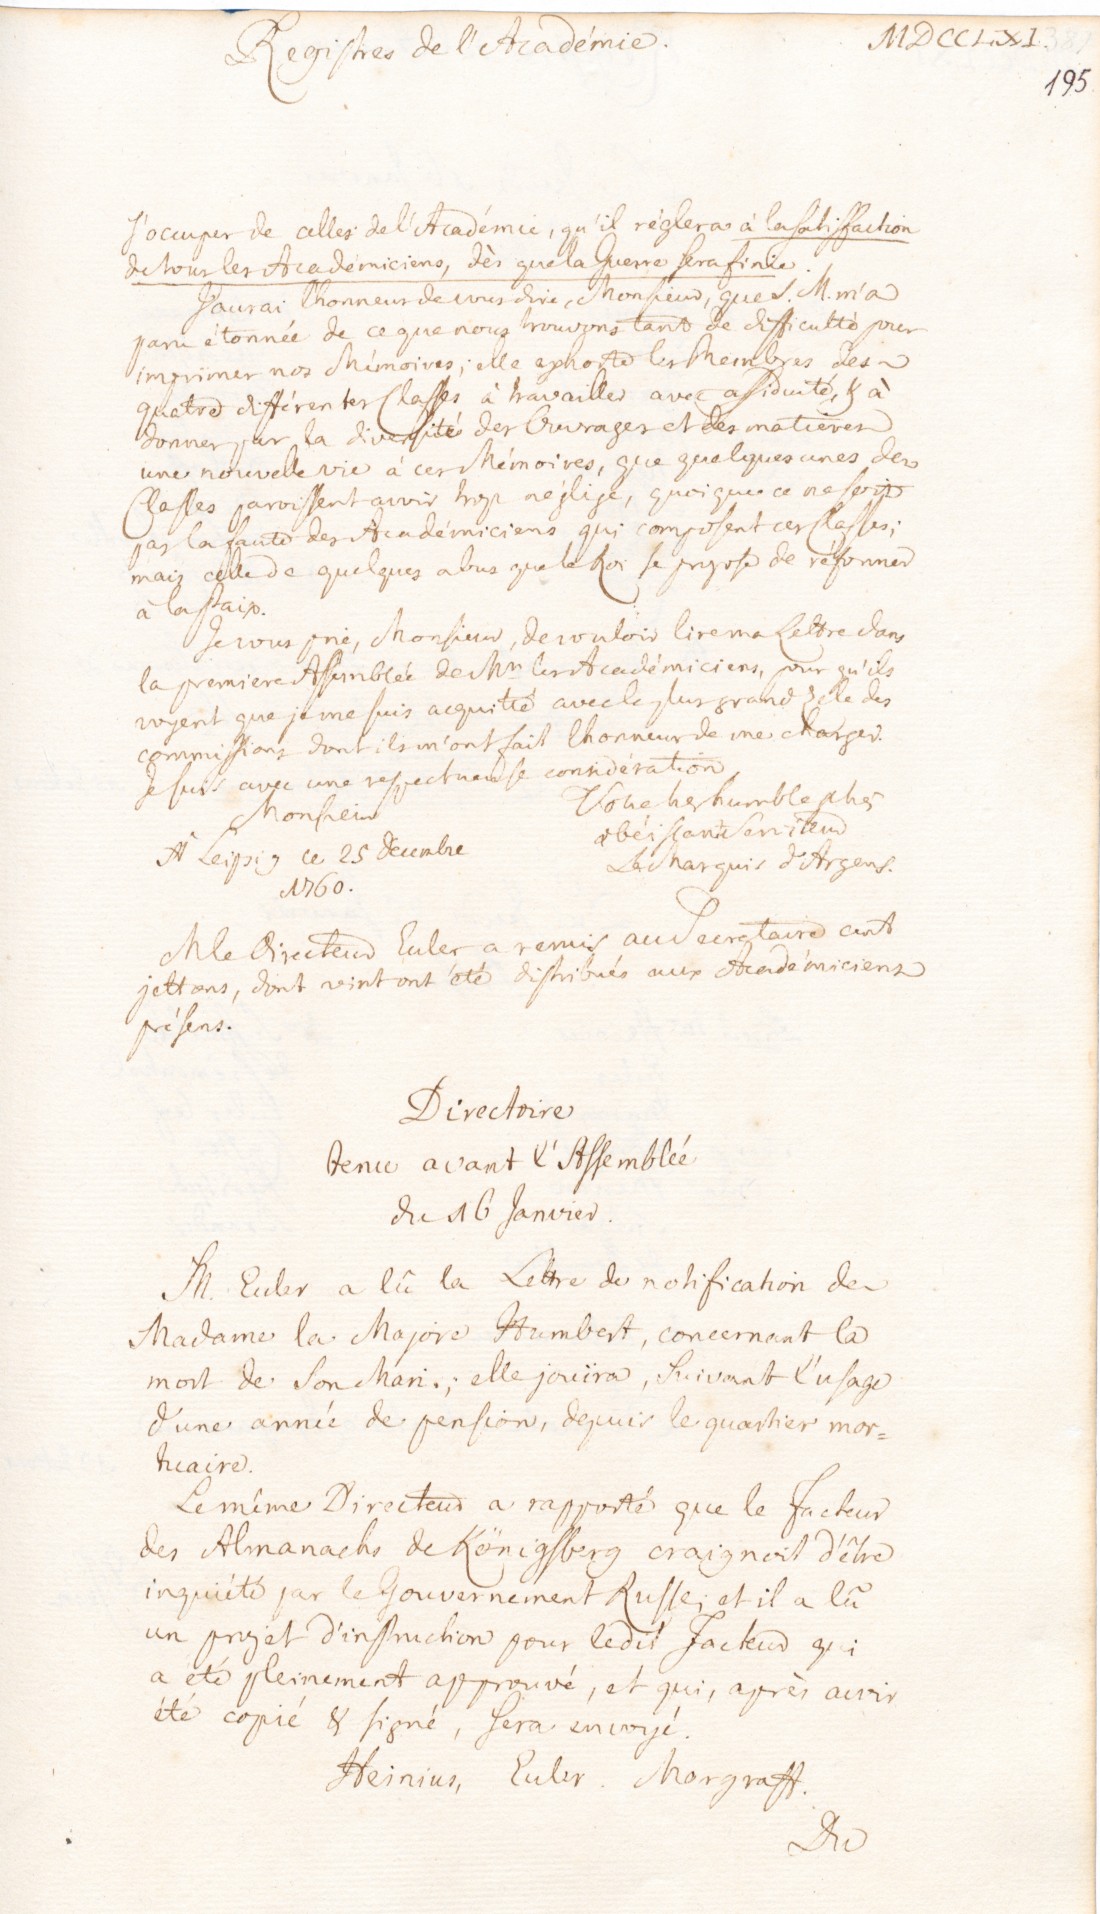 Registres de l'Académie. MDCCLXI.
195
s'occuper de celles de l'Académie, qu'il réglera à la satisfaction
de tous les Académiciens, dès que la Guerre sera finie.
J'aurai l'honneur de vous dire, Monsieur, que S. M. m'a
paru étonnée de ce que nous trouvons tant de difficulté pour
imprimer nos Mémoires; elle exhorte les Membres des
quatre différentes Classes à travailler avec assiduité, & à
donner par la diversité des Ouvrages et des matieres
une nouvelle vie à ces Mémoires, que quelques unes des
Classes paroissent avoir trop néglige, quoique ce ne soit
pas la faute des Académiciens qui composent ces Classes;
mais celle de quelques abus que le Roi se propose de réformer
à la Paix.
Je vous prie, Monsieur, de vouloir lire ma Lettre dans
la premiere Assemblée de Mrs les Académiciens, pour qu'ils
voyent que je me suis acquitté avec le plus grand zèle des
commissions dont ils m'ont fait l'honneur de me charger.
Je suis avec une respectueuse considération
Monsieur Votre tres humble & tres
obéissant Serviteur
À Leipzig ce 25 Decembre Le Marquis d'Argens.
1760.
M le Directeur Euler a remis au Secretaire cent
jettons, dont vint ont été distribués aux Académiciens
présens.
Directoire
tenu avant l'Assemblée
du 16 Janvier.
M. Euler a lû la Lettre de notification de
Madame la Majore Humbert, concernant la
mort de Son Mari.; elle jouïra, Suivant l'usage
d'une année de pension, depuis le quartier mor=
tuaire.
Le même Directeur a rapporté que le Facteur
des Almanachs de Königsberg craignoit d'être
inquiété par le Gouvernement Russe; et il a lû
un projet d'instruction pour ledit Facteur qui
a été pleinement approuvé, et qui, après avoir
été copié & signé, sera envoyé.
Heinius, Euler. Margraff.
Du